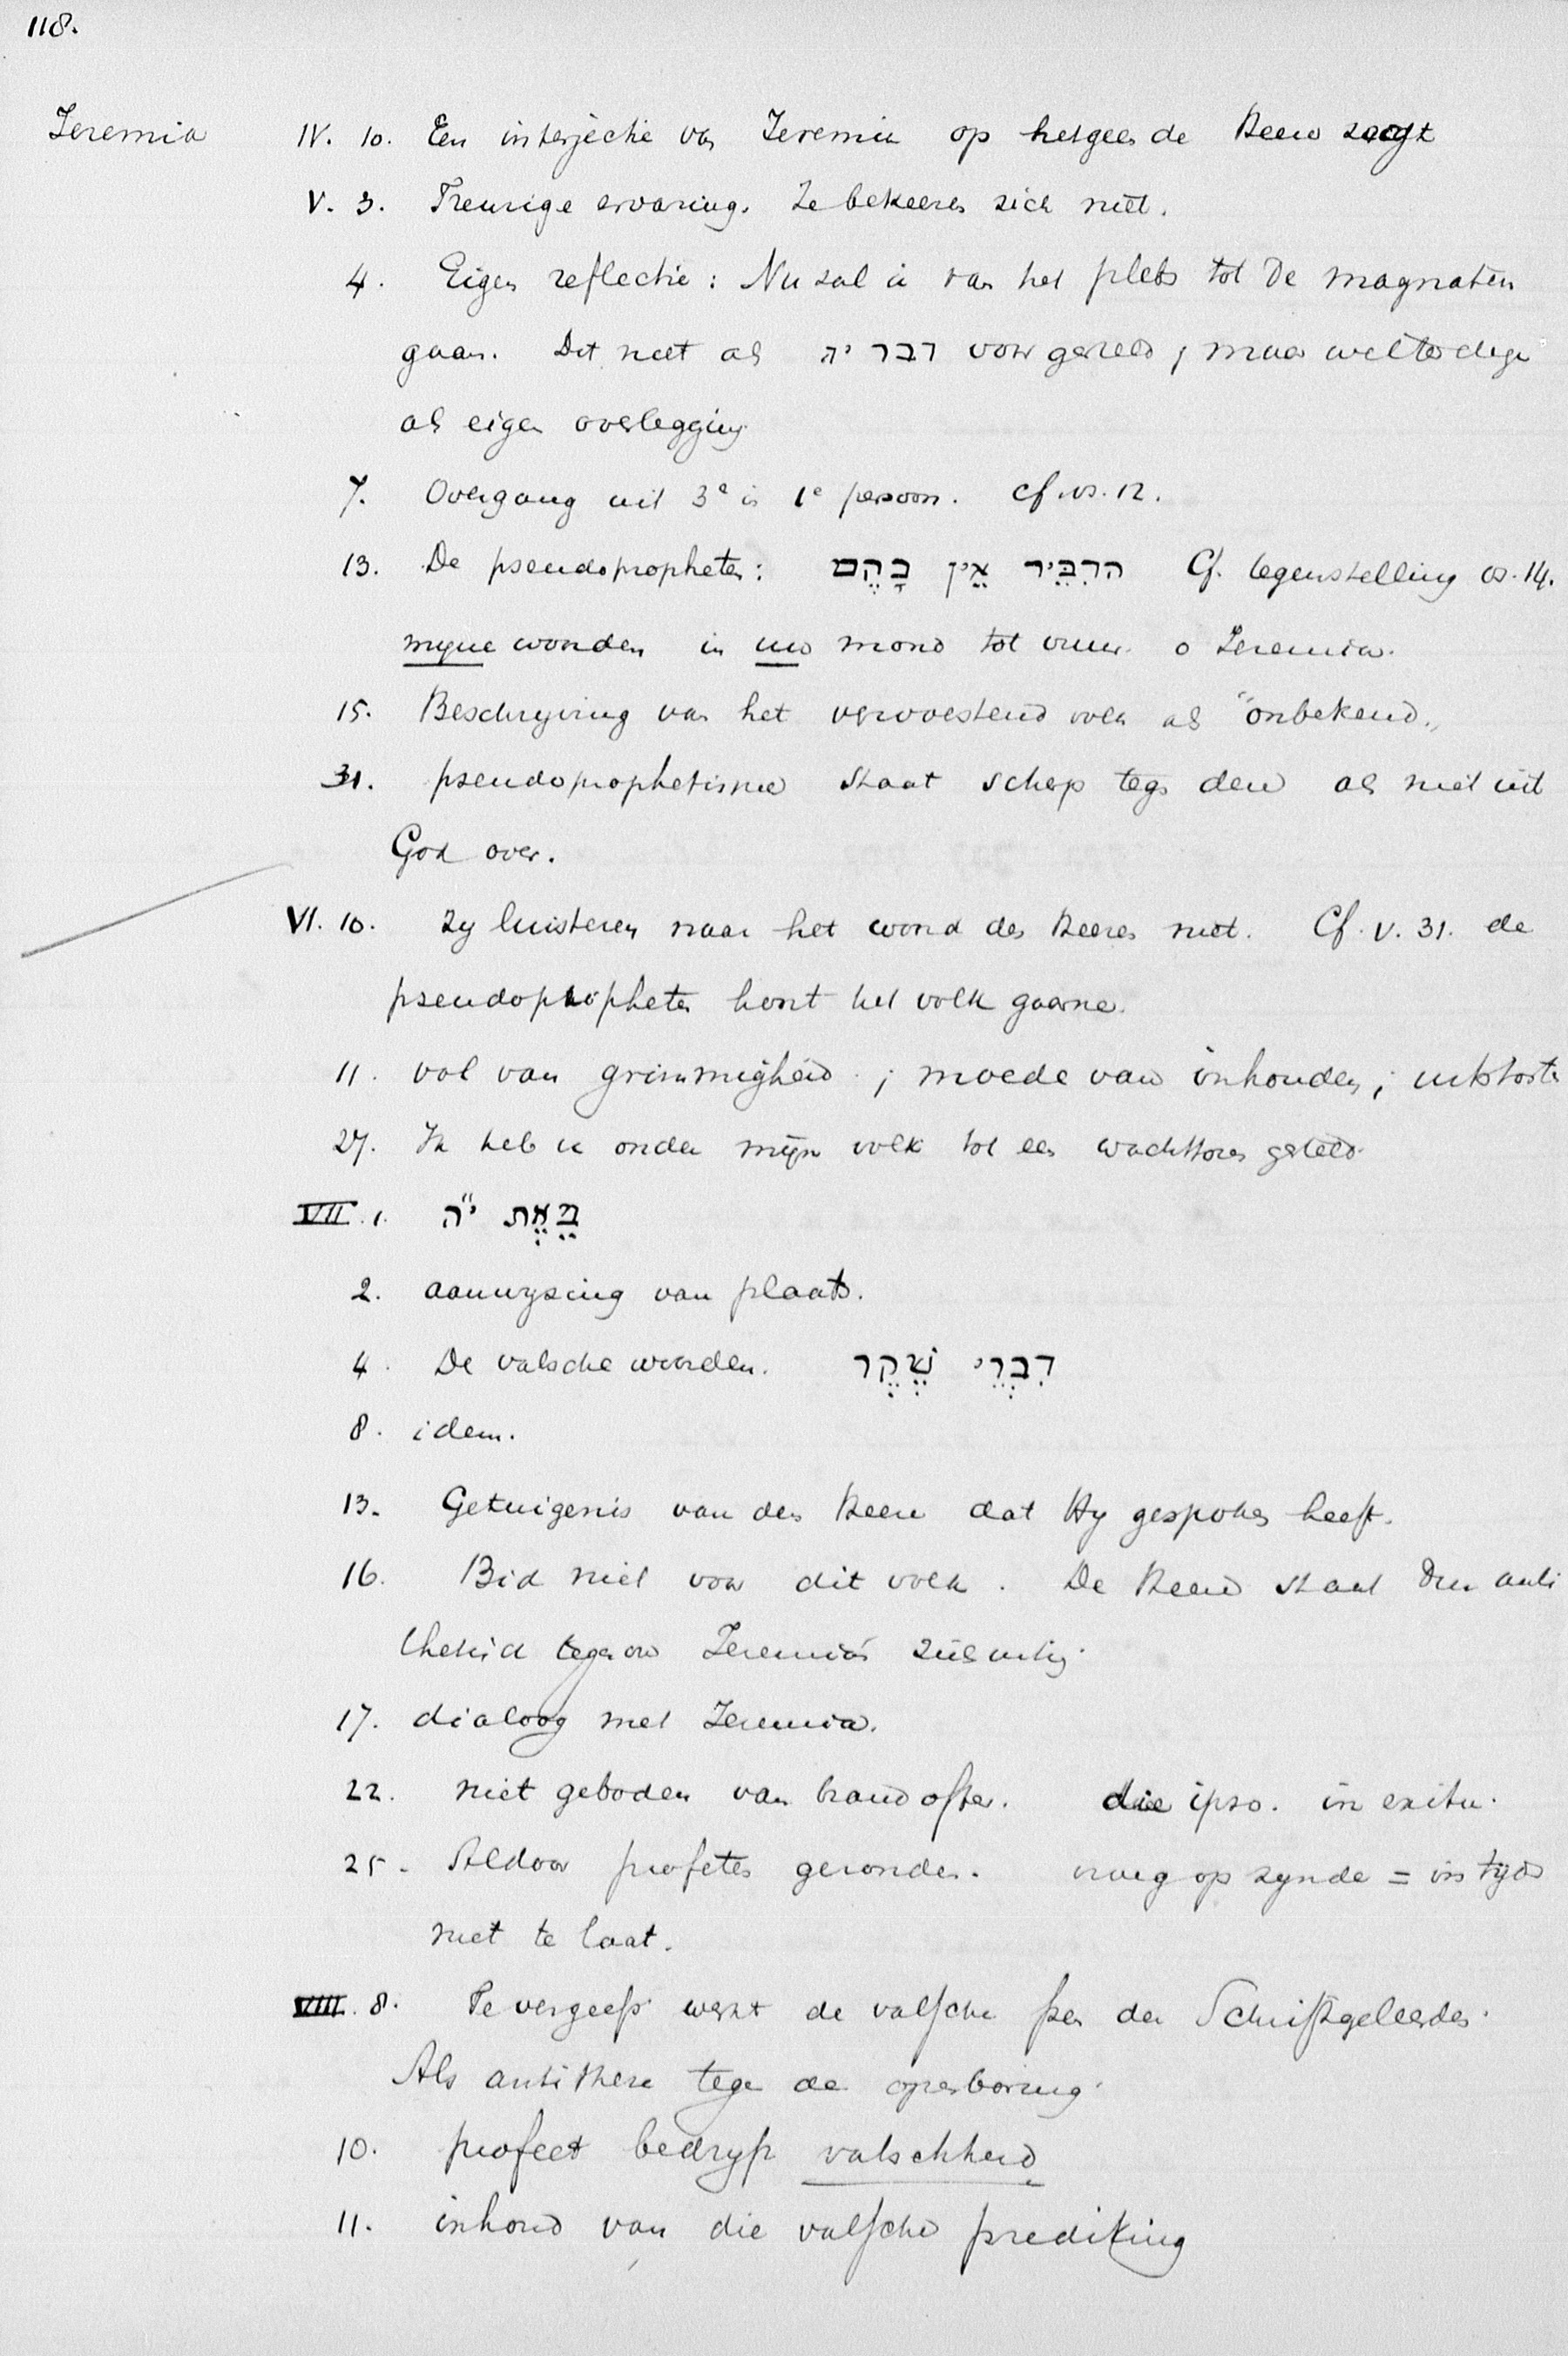 118.
Jeremia IV. 10. Een interjectie van Jeremia op hetgeen de Heere zegt
V. 3. Treurige ervaring. Ze bekeeren zich niet.
4. Eigen reflectie: Nu zal ik van het plebs tot de magnaten
gaan. Dit niet als דבר יה voorgesteld; maar wel terdege
als eigen overlegging
7. Overgang uit 3e in 1e persoon. cf. vs. 12.
13. De pseudopropheten: הדִבֵּיר אֵין בָּהֶם Cf. tegenstelling vs. 14.
mijne woorden in uw mond tot vuur o Jeremia.
15. Beschrijving van het verwoestend volk als "onbekend„
31. pseudoprophetisme staat scherp tegen den als niet uit
God over.
VI. 10. Zy luisteren naar het woord des Heeren niet. Cf. V. 31. de
pseudopropheten hoort het volk gaarne.
11. vol van grimmigheid; moede van inhouden; uitstorten
27. Ik heb u onder mijn volk tot een wachttoren gesteld.
VII. 1. מֵאֵת י״ה
2. aanwyzing van plaats.
4. De valsche woorden. דִבְרֵי שֶׁקֶר
8. idem.
13. Getuigenis van den Heere dat Hy gesproken heeft.
16. Bid niet voor dit volk. De Heere staat dus anti
thetisch tegenover Jeremia's
17. dialoog met Jeremia.
22. niet geboden van brandoffer. die ipso. in exitu.
25. Aldoor profeten gezonden. vroeg op zynde = in tijds
niet te laat.
VIII. 8. Te vergeefs werkt de valsche pen der Schriftgeleerden.
Als antithese tegen de openbaring.
10. profeet bedryft valschheid
11. inhoud van die valsche prediking